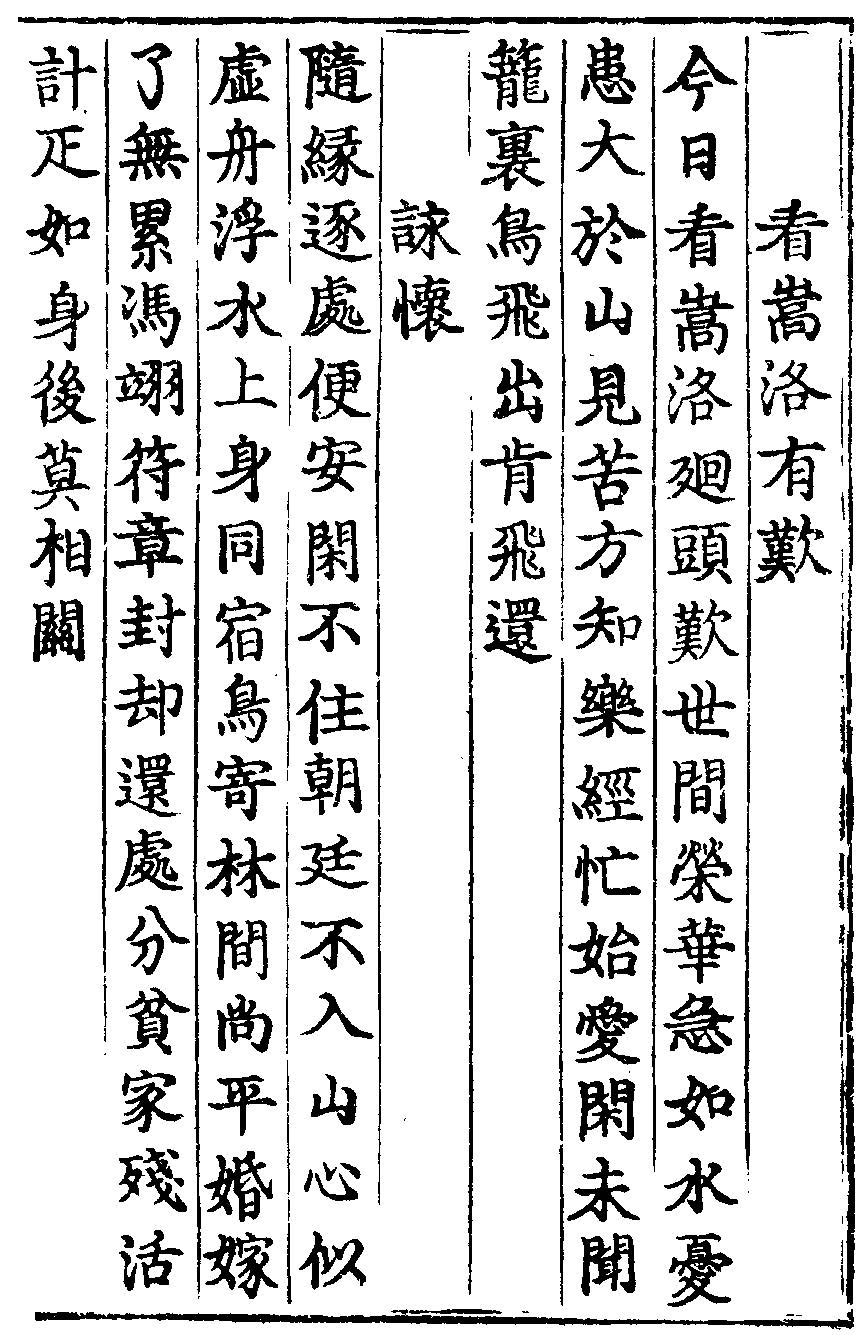 看嵩洛有歎
今日看嵩洛廻頭歎世間榮華急如水憂
患大於山見苦方知樂經忙始愛閑未聞
籠裏鳥飛出肯飛還
詠懷
隨縁逐處便安閑不住朝廷不入山心似
虛舟浮水上身同宿鳥寄林間尚平婚嫁
了無累馮翊符章封却還處分貧家殘活
計疋如身後莫相關